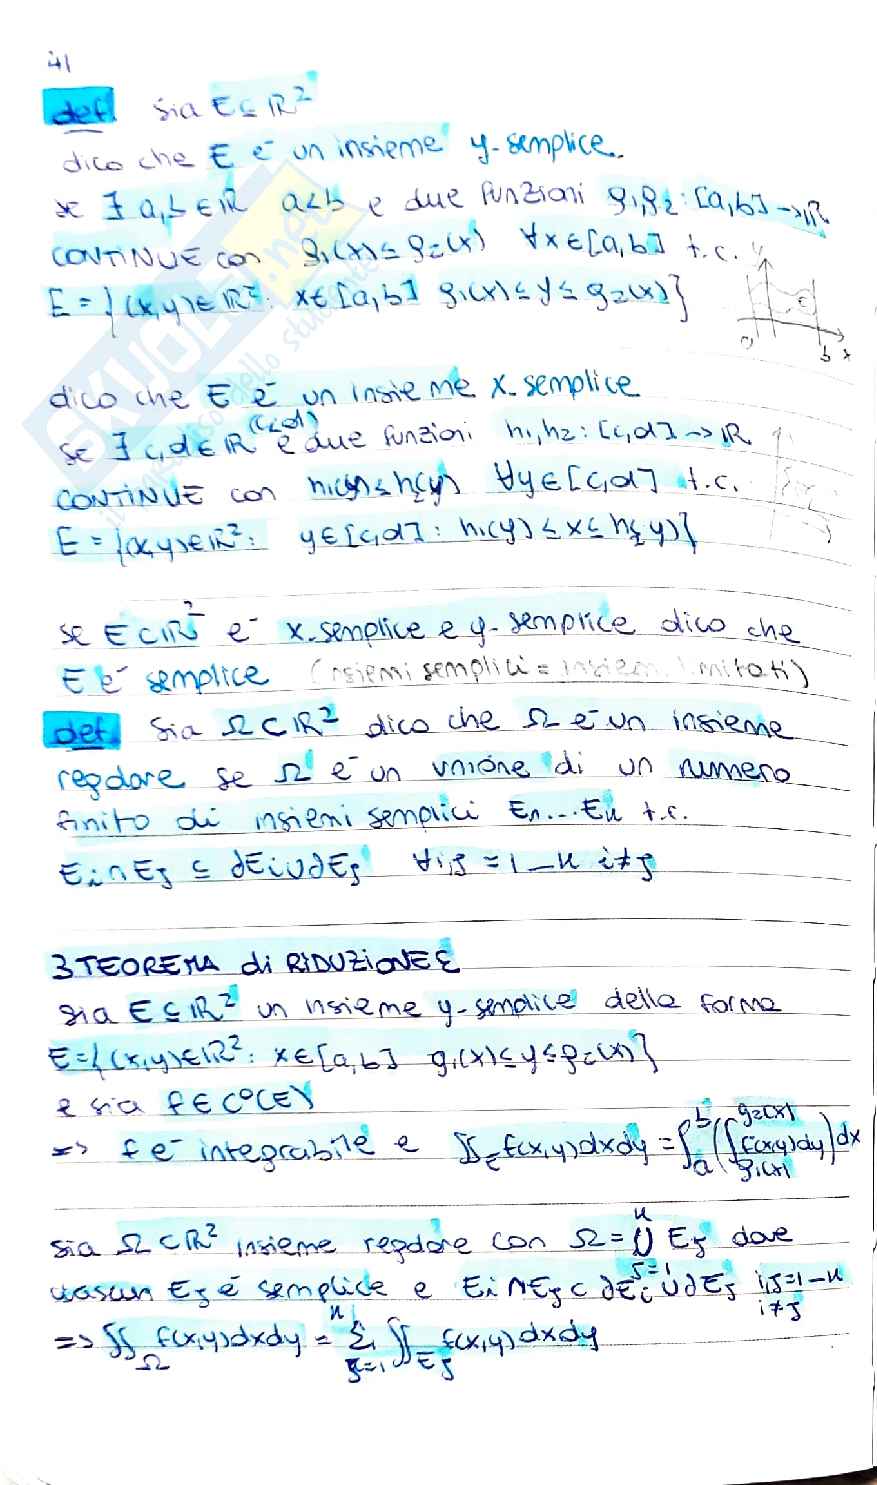 41
def. Sia E ⊆ ℝ²
dico che E è un insieme y-semplice
se ∃ a,b ∈ ℝ a<b e due funzioni g₁,g₂: [a,b] → ℝ
CONTINUE con g₁(x) ≤ g₂(x) ∀x∈[a,b] t.c.
E = {(x,y)∈ℝ²: x∈[a,b] g₁(x) ≤ y ≤ g₂(x)}
y
E
b x
dico che E è un insieme x-semplice
se ∃ c,d ∈ ℝ (c<d) e due funzioni h₁,h₂: [c,d] → ℝ
CONTINUE con h₁(y) ≤ h₂(y) ∀y∈[c,d] t.c.
E = {(x,y)∈ℝ²: y∈[c,d]: h₁(y) ≤ x ≤ h₂(y)}
se E⊂ℝ² è x-semplice e y-semplice dico che
E è semplice (insiemi semplici = insiemi limitati)
def. Sia Ω⊂ℝ² dico che Ω è un insieme
regolare se Ω è un unione di un numero
finito di insiemi semplici E₁...Eₙ t.c.
Eᵢ∩Eⱼ ⊆ ∂Eᵢ∪∂Eⱼ ∀i,j = 1-n i≠j
3 TEOREMA di RIDUZIONE
Sia E⊆ℝ² un insieme y-semplice della forma
E={(x,y)∈ℝ²: x∈[a,b] g₁(x)≤y≤g₂(x)}
e sia f∈C⁰(E)
=> f è integrabile e ∬_E f(x,y)dxdy = ∫_a^b (∫_{g₁(x)}^{g₂(x)} f(x,y)dy)dx
Sia Ω⊂ℝ² insieme regolare con Ω = ⋃_{j=1}^n Eⱼ dove
ciascun Eⱼ è semplice e Eᵢ∩Eⱼ⊂∂Eᵢ∪∂Eⱼ i,j=1-n
i≠j
=> ∬_Ω f(x,y)dxdy = Σ_{j=1}^n ∬_{Eⱼ} f(x,y)dxdy